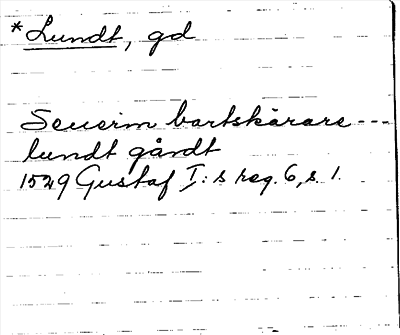 *Lundt, gd
Seuerin bartskärare ---
lundt gårdt
1529 Gustaf I:s reg. 6, s. 1.